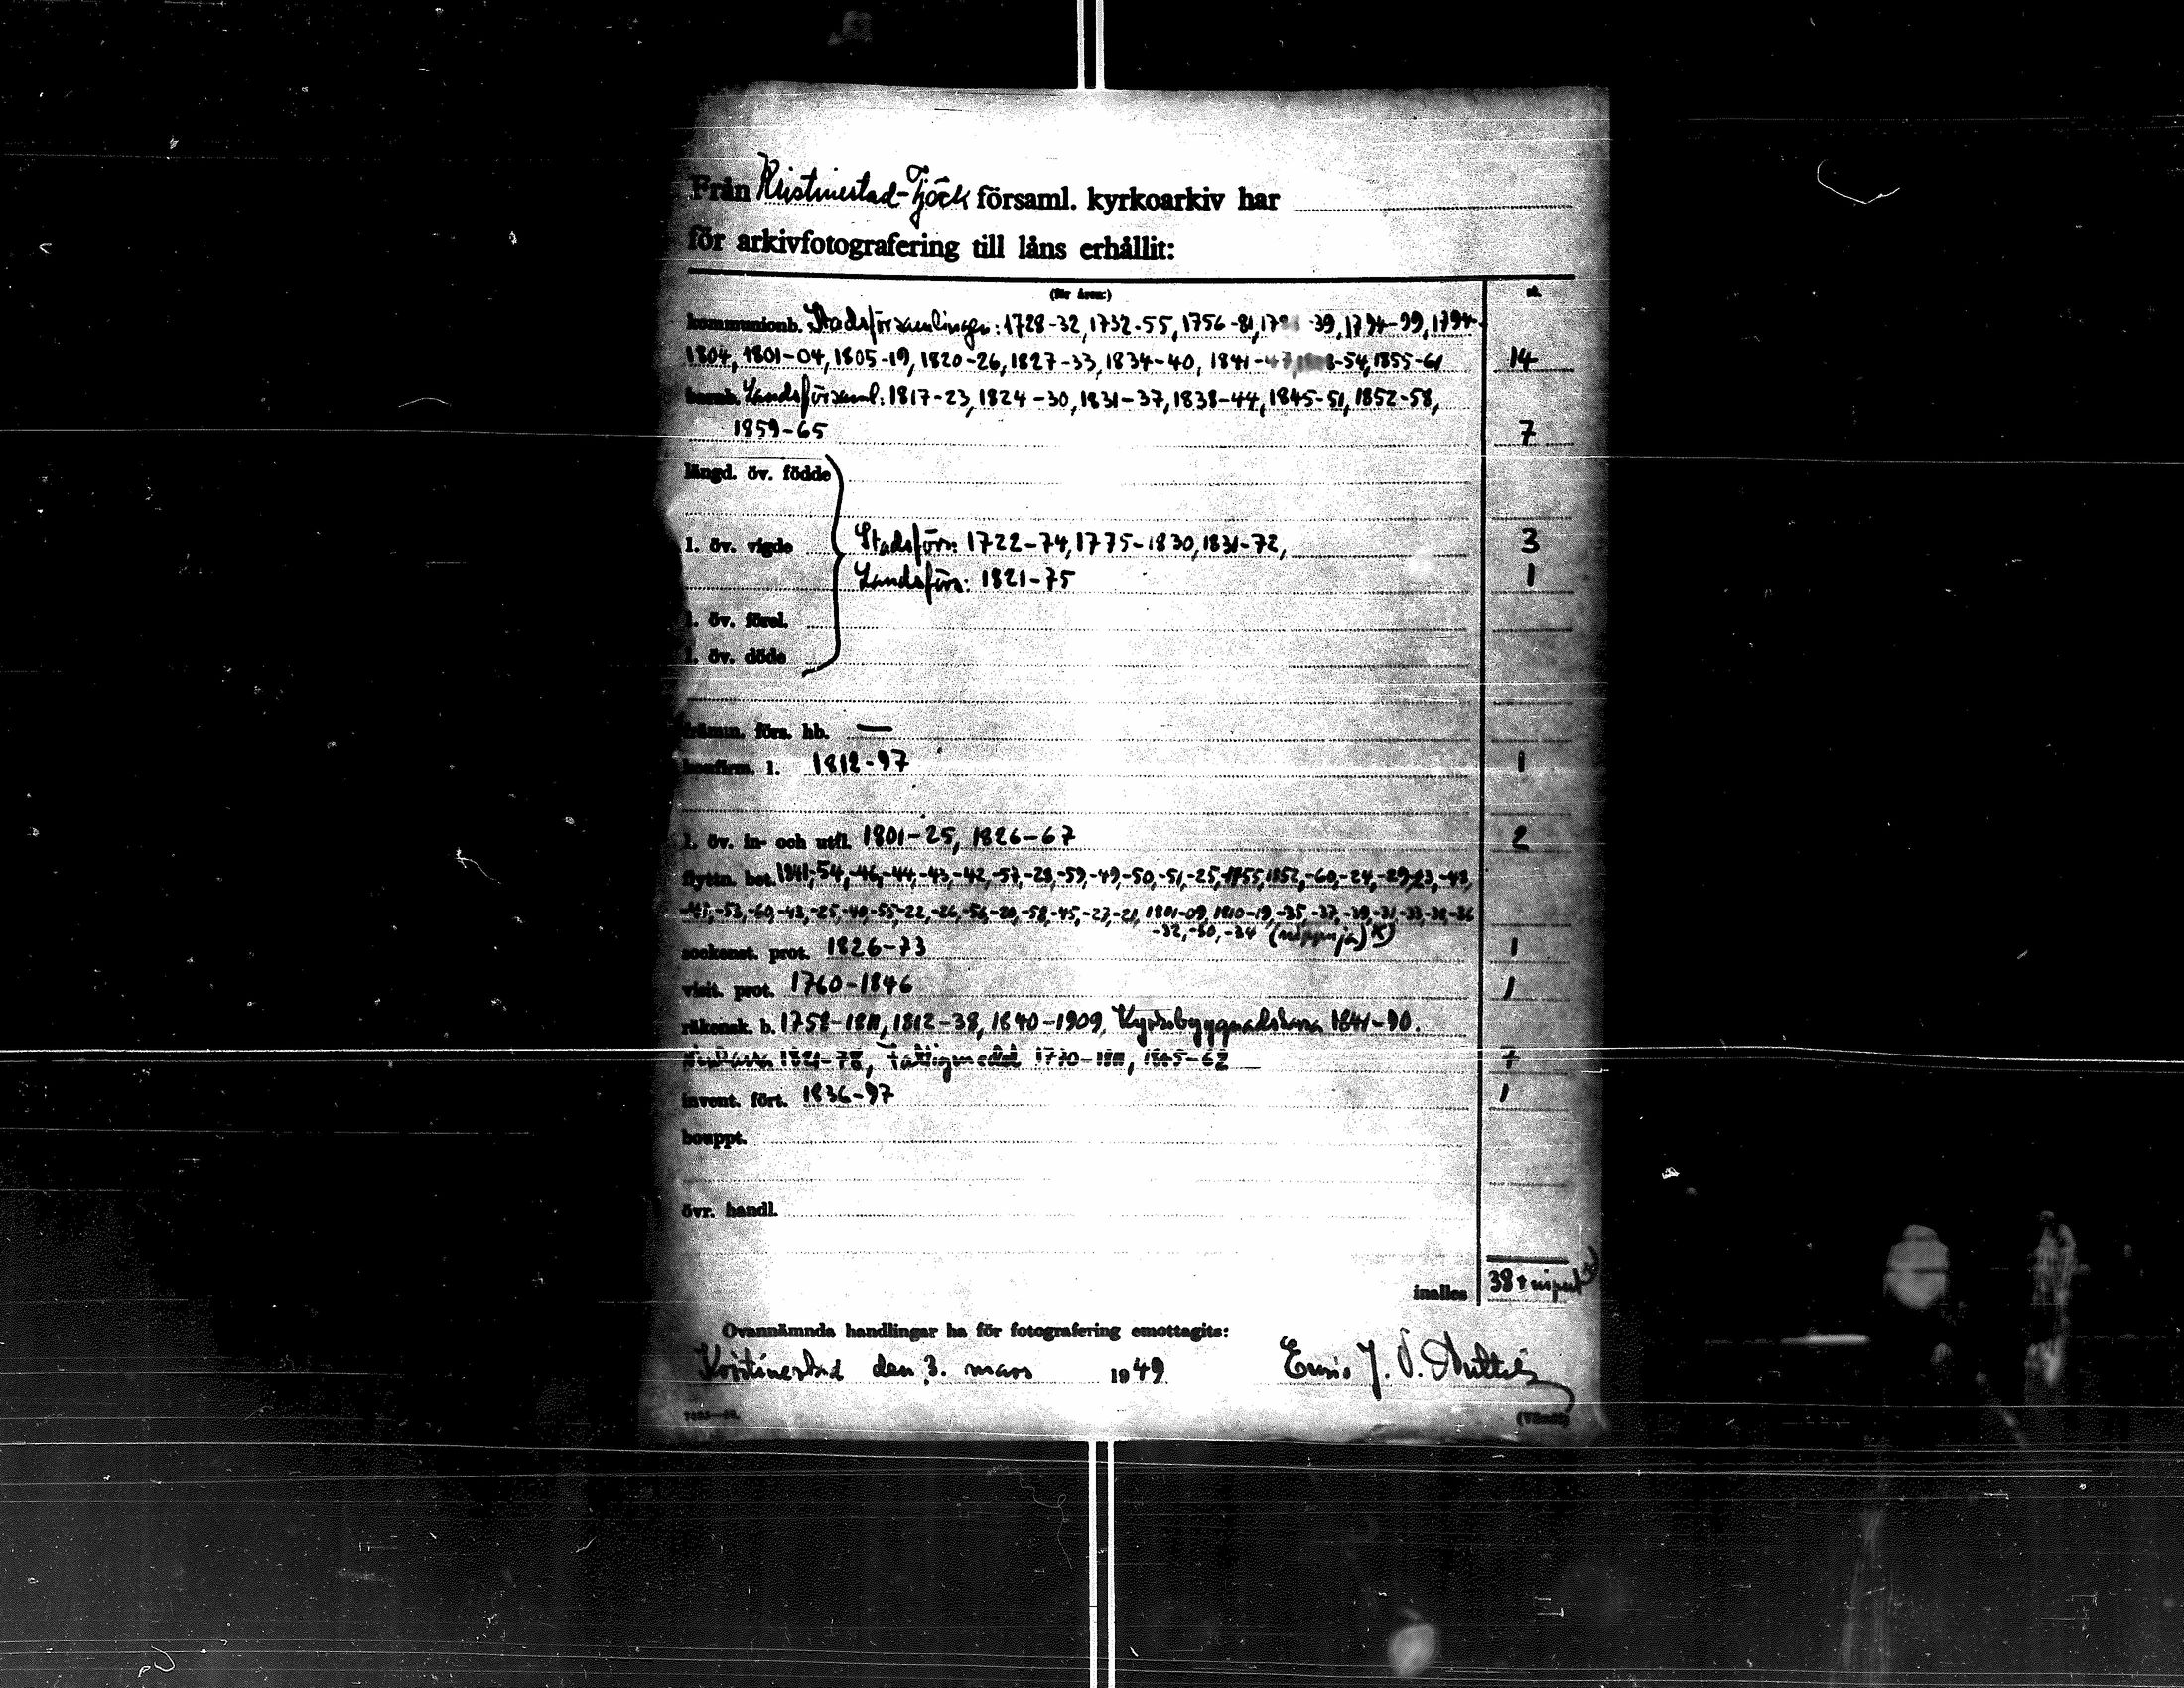 Från Kristinestad-Tjöck församl. kyrkoarkiv har
för arkivfotografering till låns erhållit:
(för åren:) st.
kommunionb. Stadsförsamlingen: 1728-32, 1732-55, 1756-81, -39, 1794-99, 1794-
1804, 1801-04, 1805-19, 1820-26, 1827-33, 1834-40, 1841-47, -54, 1855-61 14
barnb. Landsförsaml: 1817-23, 1824-30, 1831-37, 1838-44, 1845-51, 1852-58,
1859-65 7
längd. öv. födde
l. öv. vigde Stadsförs: 1722-74, 1775-1830, 1831-72, 3
Landsförs: 1821-75 1
l. öv. förel.
l. öv. döde
främm. förs. hb. —
konfirm. l. 1812-97 1
l. öv. in- och utfl. 1801-25, 1826-67 2
flyttn. bet. 1841, -54, -46, -44, -43, -42, -57, -28, -59, -49, -50, -51, -25, 1855, 1852, -60, -24, -29, -23, -48,
-53, -60, -43, -25, -40, -55, -22, -26, -56, -20, -58, -45, -27, -21, 1801-09, 1810-19, -35, -37, -39, -31, -33, -38, -36
-32, -30, -34
sockenst. prot. 1826-73 1
visit. prot. 1760-1846 1
räkensk. b. 1758-1811, 1812-38, 1840-1909, Kyrkobyggnadskassa 1841-90.
1821-78, Fattigmedel 1770-1811, 1845-62 7
invent. fört. 1836-97 1
bouppt.
övr. handl.
inalles 38 +
Ovannämnda handlingar ha för fotografering emottagits:
Kristinestad den 3. mars 1949 J.
(Vänd!)